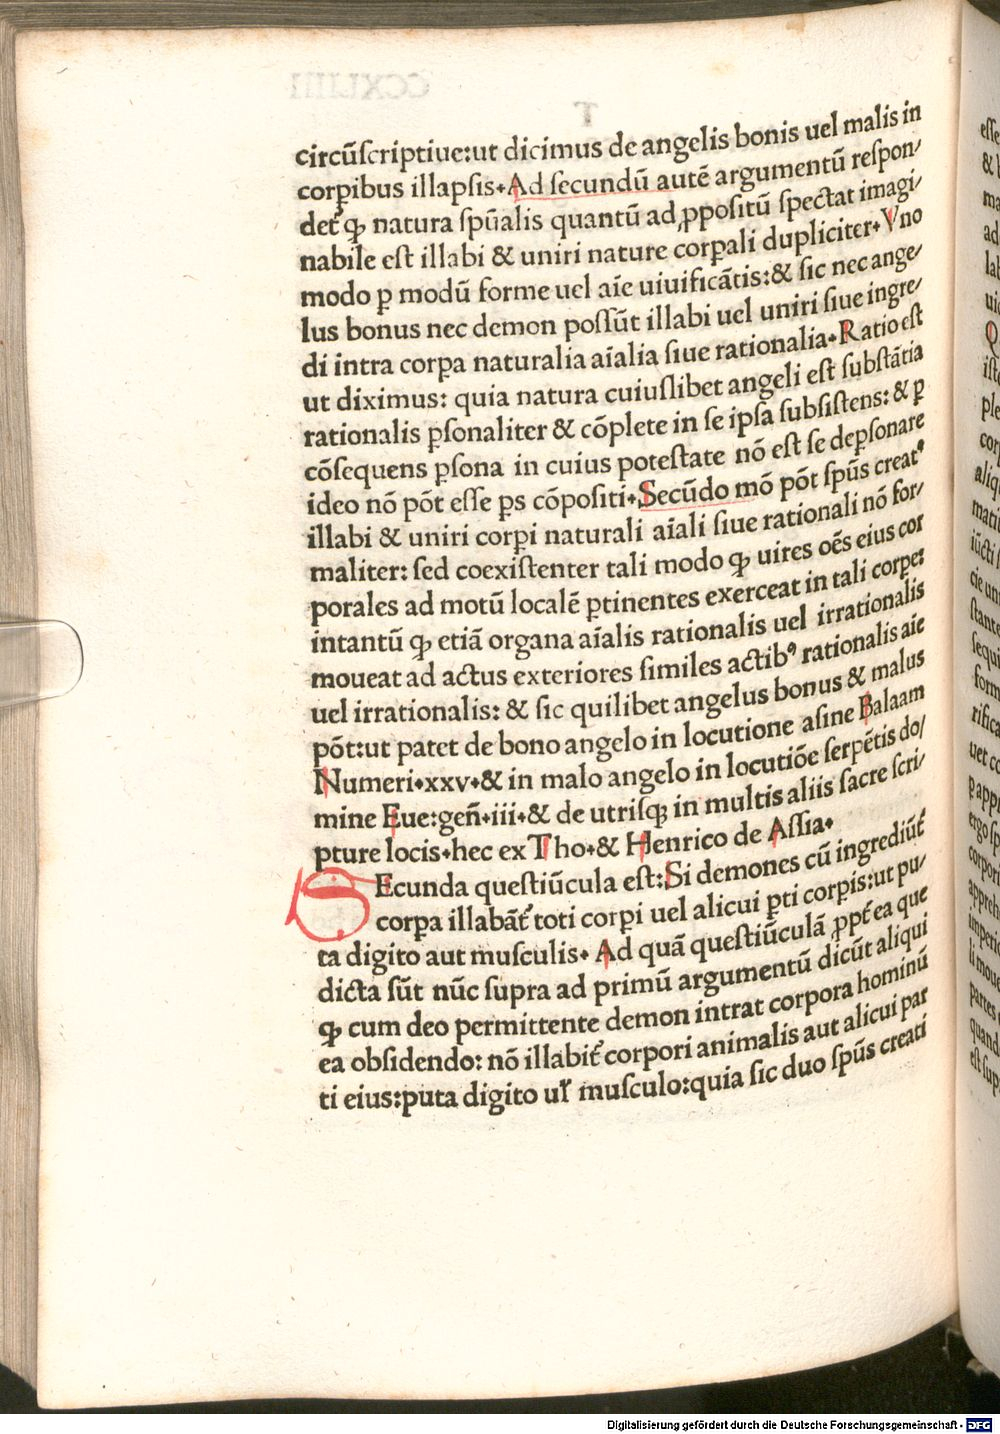 circūſcriptiue:ut dicimus de angelis bonis uel malis in
corꝑibus illapſis. Ad ſecundū autē argumentū reſpon/
det̉ ꝙ natura ſpūalis quantū ad ꝓpoſitū ſpectat imagi/
nabile eſt illabi & uniri nature corꝑali dupliciter. Vno
modo ꝑ modū forme uel aīe uiuificātis:& ſic nec ange/
lus bonus nec demon poſſūt illabi uel uniri ſiue ingre/
di intra corꝑa naturalia aīalia ſiue rationalia. Ratio eſt
ut diximus: quia natura cuiuſlibet angeli eſt ſubſtātia
rationalis ꝑſonaliter & cōplete in ſe ipſa ſubſiſtens: & ꝑ
cōſequens ꝑſona in cuius poteſtate nō eſt ſe deꝑſonare
ideo nō pōt eſſe ꝑs cōpoſiti. Secūdo mō pōt ſpūs creatꝰ
illabi & uniri corꝑi naturali aīali ſiue rationali nō for/
maliter: ſed coexiſtenter tali modo ꝙ uires oēs eius cor
porales ad motū localē ꝑtinentes exerceat in tali corꝑe:
intantū ꝙ etiā organa aīalis rationalis uel irrationalis
moueat ad actus exteriores ſimiles actibꝰ rationalis aīe
uel irrationalis: & ſic quilibet angelus bonus & malus
pōt:ut patet de bono angelo in locutione aſine Balaam
Numeri.xxv.& in malo angelo in locutiōe ſerpētis do/
mine Eue:geñ.iii.& de utriſꝙ in multis aliis ſacre ſcri/
pture locis.hec ex Tho.& Henrico de Aſſia.
SEcunda queſtiūcula eſt:Si demones cū ingrediūt̉
corꝑa illabāt̉ toti corꝑi uel alicui ꝑti corꝑis:ut pu/
ta digito aut muſculis. Ad quā queſtiūculā ꝓpt̉ ea que
dicta ſūt nūc ſupra ad primū argumentū dicūt aliqui
ꝙ cum deo permittente demon intrat corpora hominū
ea obſidendo: nō illabit̉ corpori animalis aut alicui par
ti eius:puta digito uł muſculo:quia ſic duo ſpūs creati
Digitalisierung gefördert durch die Deutsche Forschungsgemeinschaft - DFG